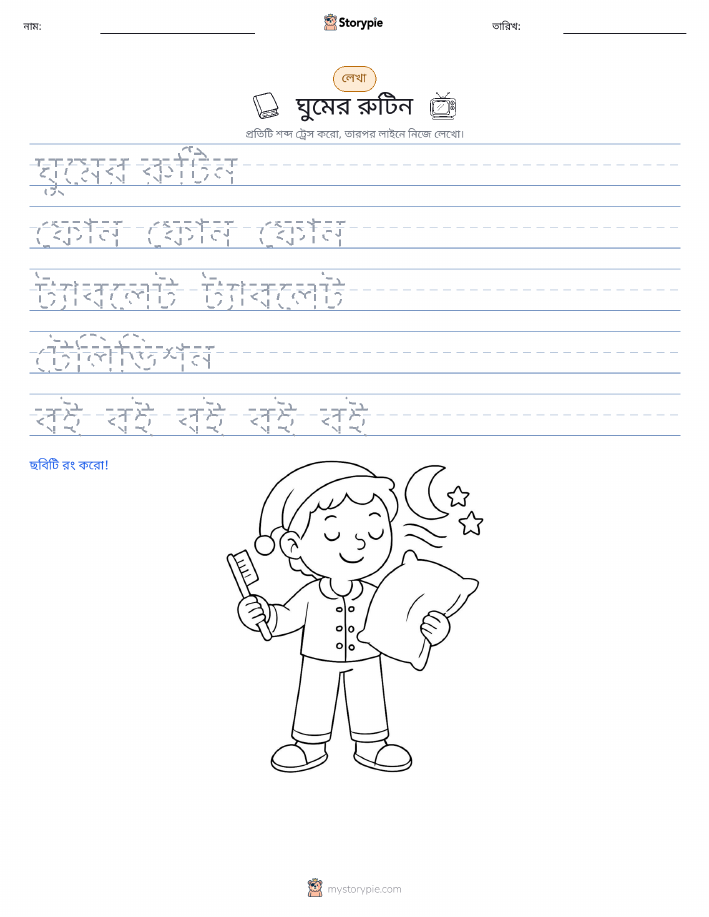 নাম:
Storypie
তারিখ:
লেখা
ঘুমের রুটিন
প্রতিটি শব্দ ট্রেস করো, তারপর লাইনে নিজে লেখো।
ঘুমের রুটিন
ফোন ফোন ফোন
ট্যাবলেট ট্যাবলেট
টেলিভিশন
বই বই বই বই বই
ছবিটি রং করো!
mystorypie.com